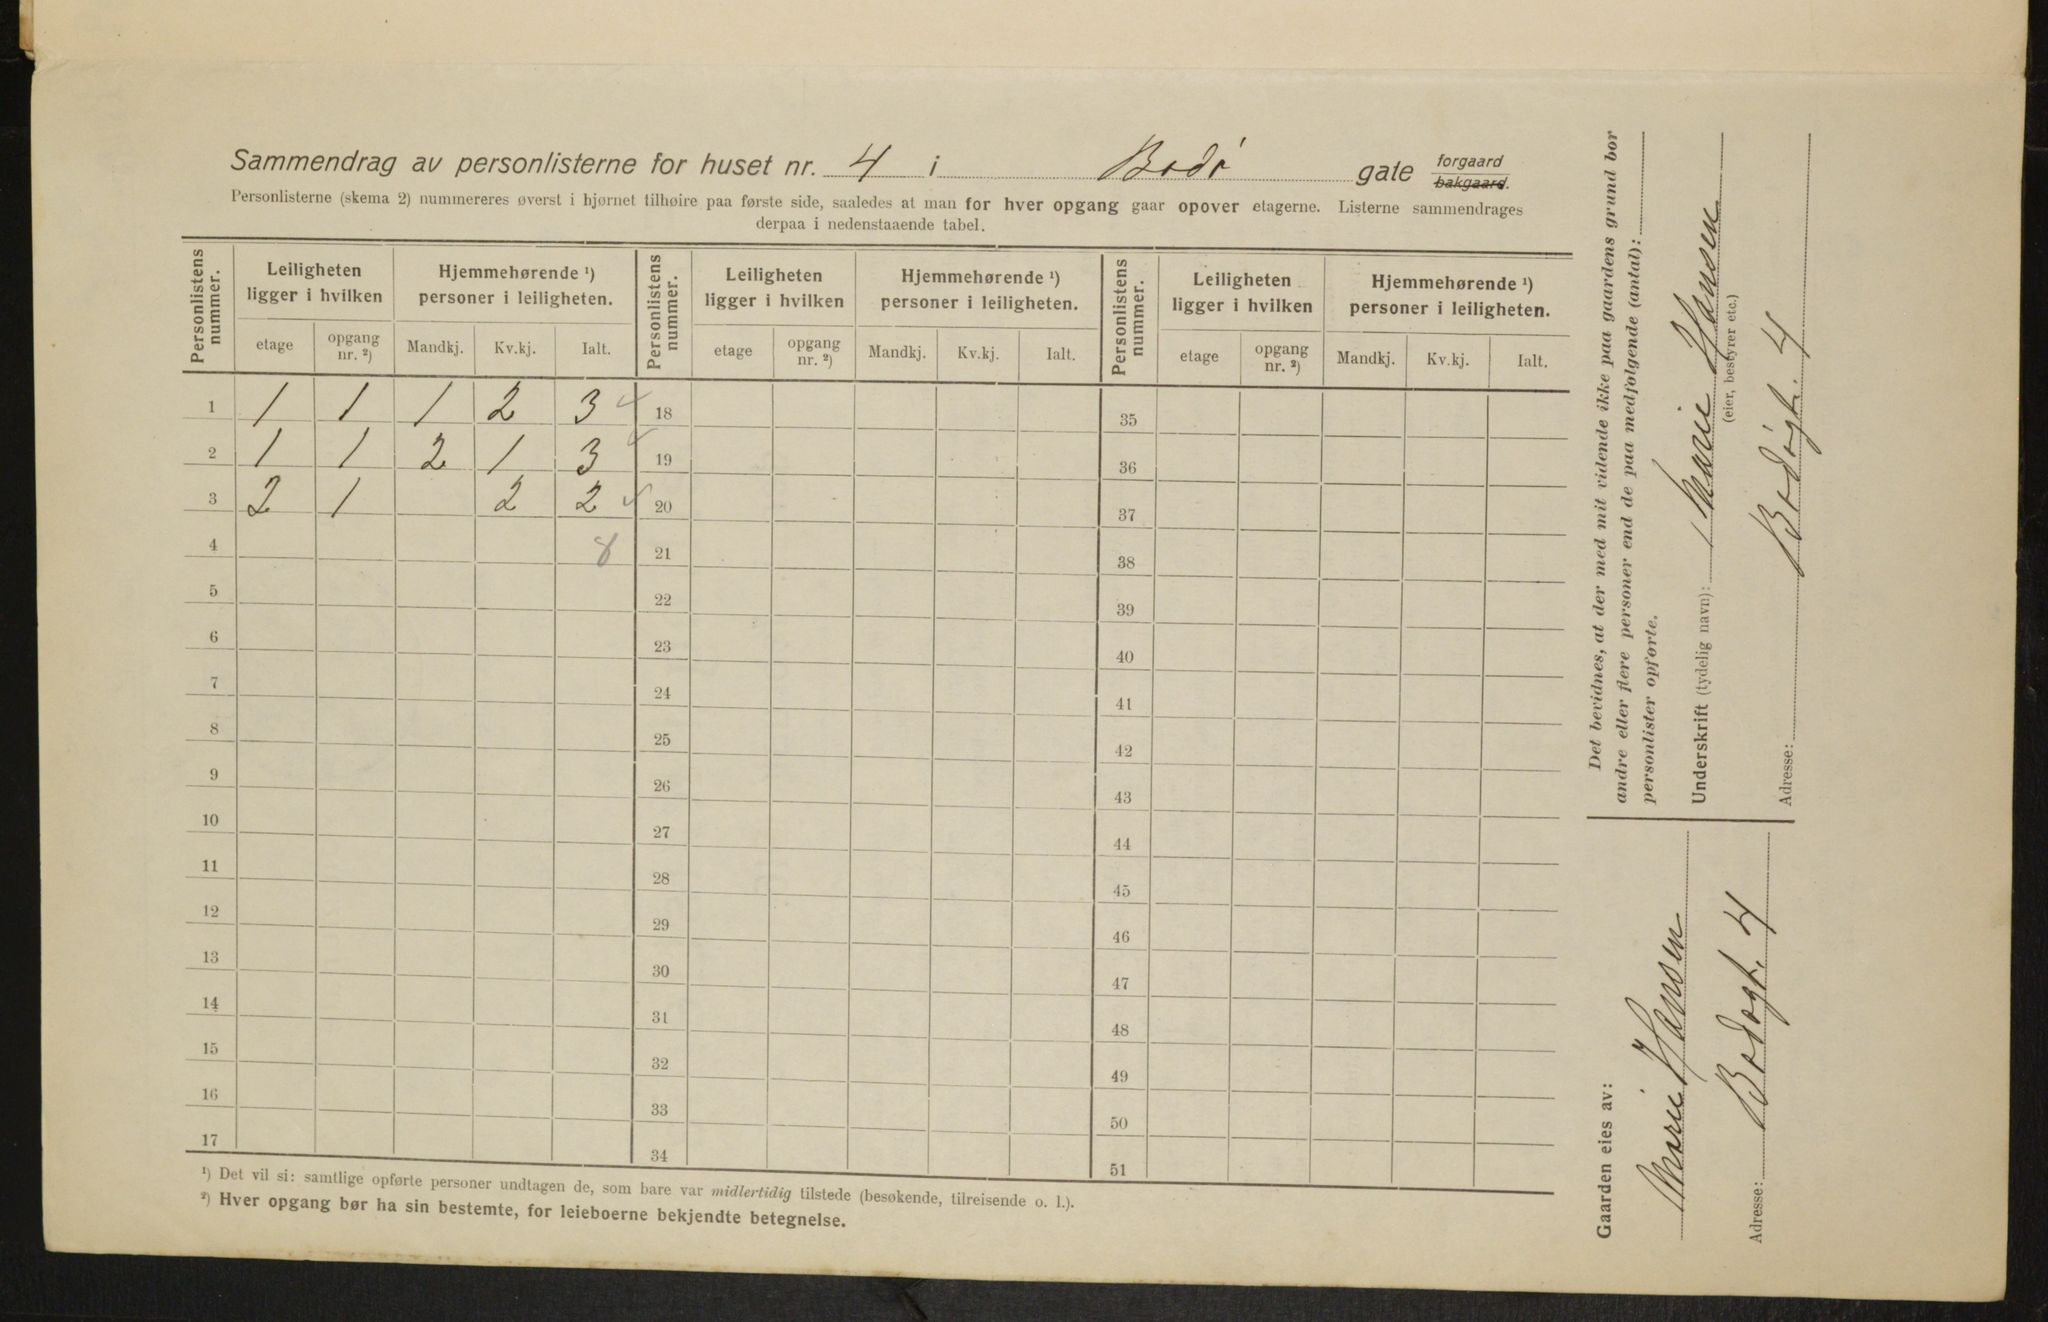 Sammendrag av personlisterne for huset nr. 4 i Bodø gate forgaard bakgaard.
Personlisterne (skema 2) nummereres øverst i hjørnet tilhøire paa første side, saaledes at man for hver opgang gaar opover etagerne. Listerne sammendrages
derpaa i nedenstaaende tabel.
Personlistens nummer. Leiligheten ligger i hvilken Hjemmehørende ¹) personer i leiligheten. Personlistens nummer. Leiligheten ligger i hvilken Hjemmehørende ¹) personer i leiligheten. Personlistens nummer. Leiligheten ligger i hvilken Hjemmehørende ¹) personer i leiligheten.
etage opgang nr. ²) Mandkj. Kv.kj. Ialt. etage opgang nr. ²) Mandkj. Kv.kj. Ialt. etage opgang nr. ²) Mandkj. Kv.kj. Ialt.
1 1 1 1 2 3 18 35
2 1 1 2 1 3 19 36
3 2 1 2 2 20 37
4 8 21 38
5 22 39
6 23 40
7 24 41
8 25 42
9 26 43
10 27 44
11 28 45
12 29 46
13 30 47
14 31 48
15 32 49
16 33 50
17 34 51
¹) Det vil si: samtlige opførte personer undtagen de, som bare var midlertidig tilstede (besøkende, tilreisende o. l.).
²) Hver opgang bør ha sin bestemte, for leieboerne bekjendte betegnelse.
Det bevidnes, at der med mit vidende ikke paa gaardens grund bor
andre eller flere personer end de paa medfølgende (antal):
personlister opførte.
Underskrift (tydelig navn): Marie Hansen
(eier, bestyrer etc.)
Adresse: Bodøgt. 4
Gaarden eies av:
Marie Hansen
Adresse: Bodøgt. 4